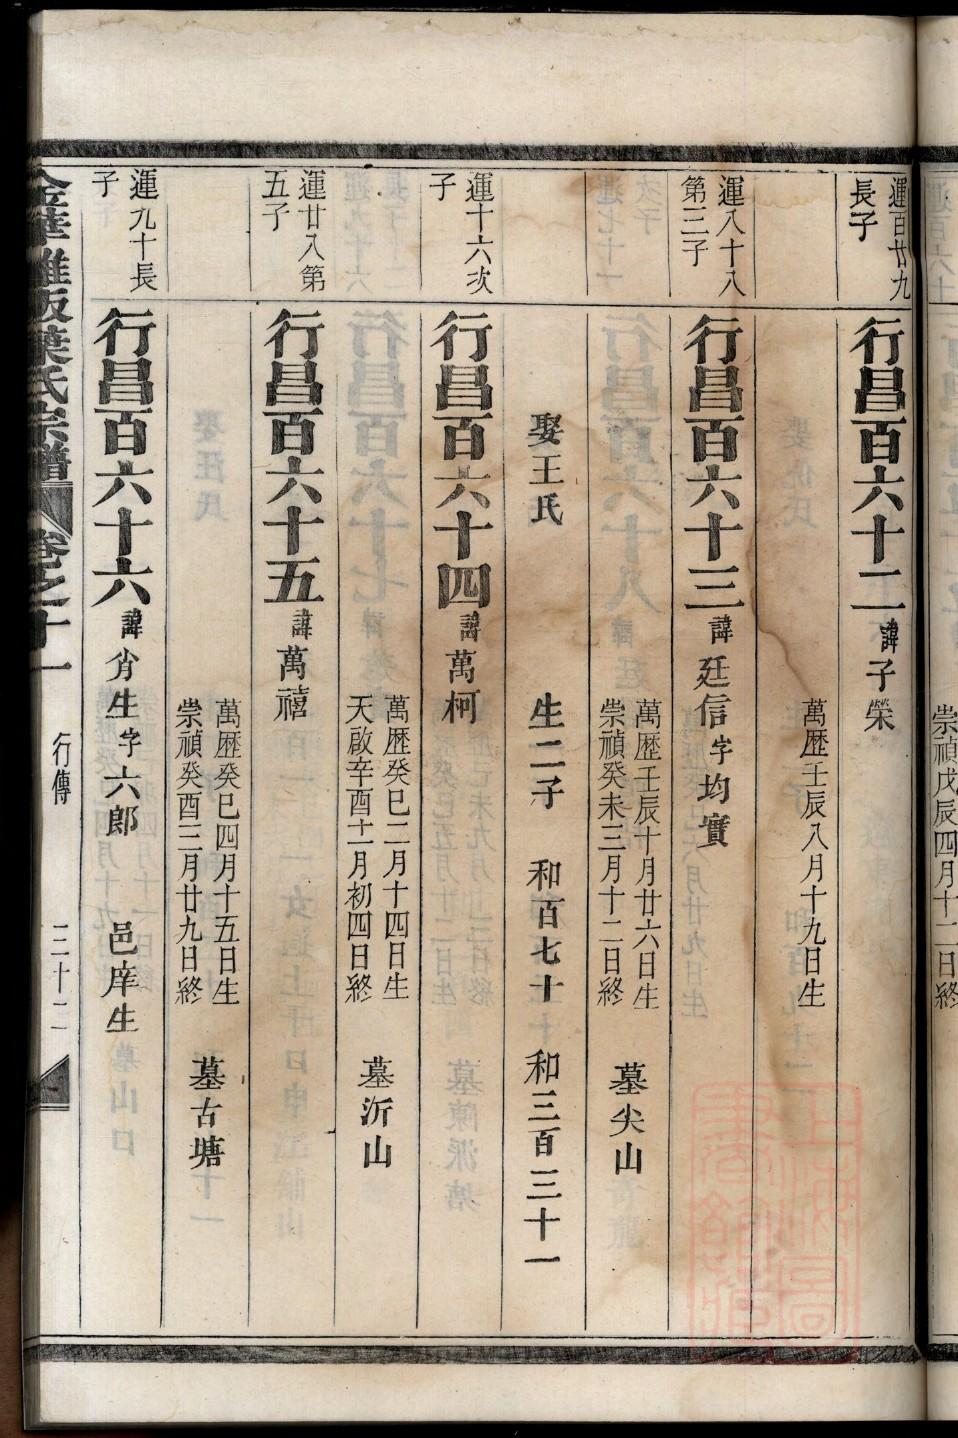 運百廿九
長子
行昌百六十二 諱子榮
萬歴壬辰八月十九日生
運八十八
第三子
行昌百六十三 諱廷信字均實
萬歴壬辰十月廿六日生
崇禎癸未三月十二日終
墓尖山
娶王氏 生二子 和百七十 和三百三十一
運十六次
子
行昌百六十四 諱萬柯
萬歴癸巳二月十四日生
天啟辛酉十一月初四日終
墓沂山
運廿八第
五子
行昌百六十五 諱萬禧
萬歴癸巳四月十五日生
崇禎癸酉三月廿九日終
墓古塘
運九十長
子
行昌百六十六 諱肖生字六郎 邑庠生
葉氏宗譜 卷之十一 行傳 三十二
崇禎戊辰四月十二日終